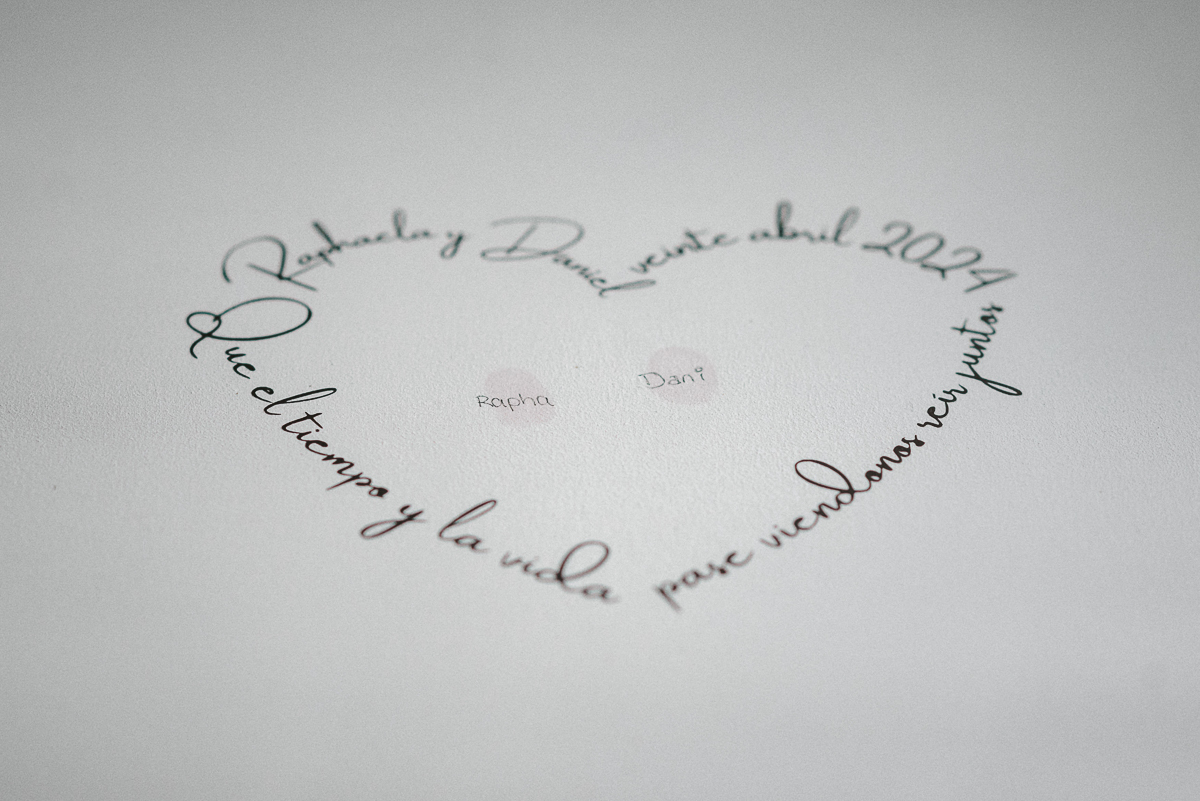 Raphaela y Daniel veinte abril 2024
Que el tiempo y la vida pase viendonos reír juntos
Rapha
Dani